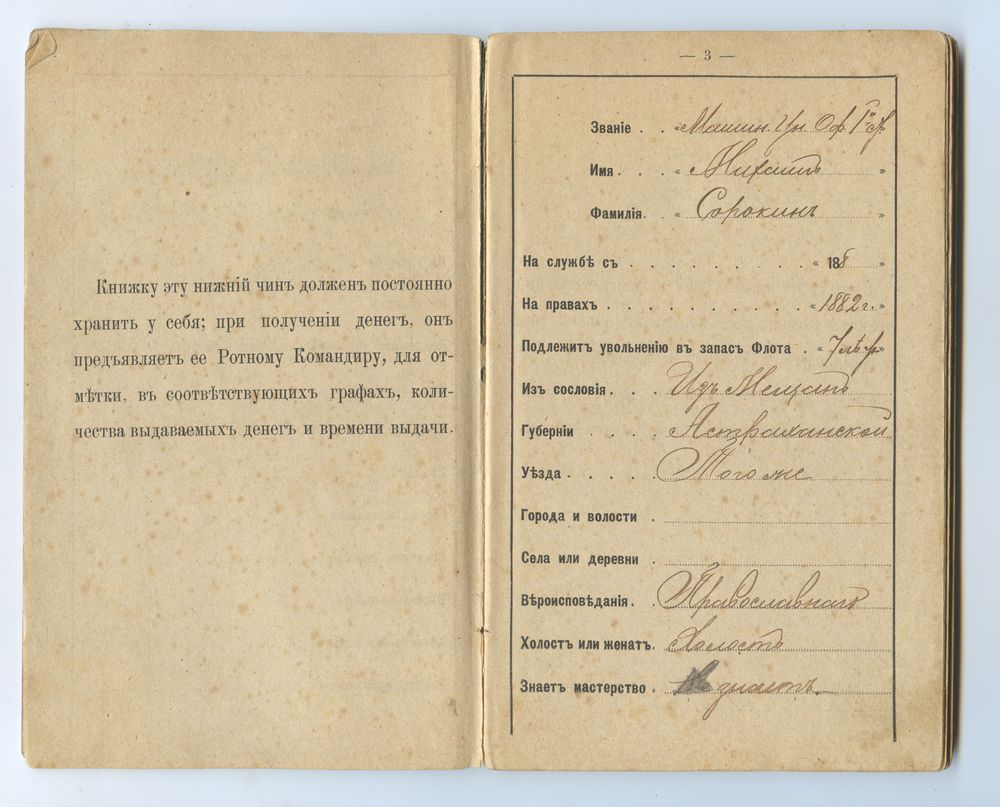 Книжку эту нижній чинъ долженъ постоянно
хранить у себя; при полученіи денегъ, онъ
предъявляетъ ее Ротному Командиру, для от-
мѣтки, въ соотвѣтствующихъ графахъ, коли-
чества выдаваемыхъ денегъ и времени выдачи.
— 3 —
Званіе . . „Машин. Ун. Оф. 1й ст.
Имя . . . „ Михаилъ „
Фамилія. „ Сорокинъ „
На службѣ съ . . . . . . . . . „ 188 „
На правахъ . . . . . . . . . . „1882 г. „
Подлежитъ увольненію въ запасъ Флота . „ 7 „
Изъ сословія . . . Изъ Мещанъ
Губерніи . . . . Астраханской
Уѣзда . . . . . Того же
Города и волости .
Села или деревни .
Вѣроисповѣданія. . Православнаго
Холостъ или женатъ. Холостъ
Знаетъ мастерство . Не знаетъ.